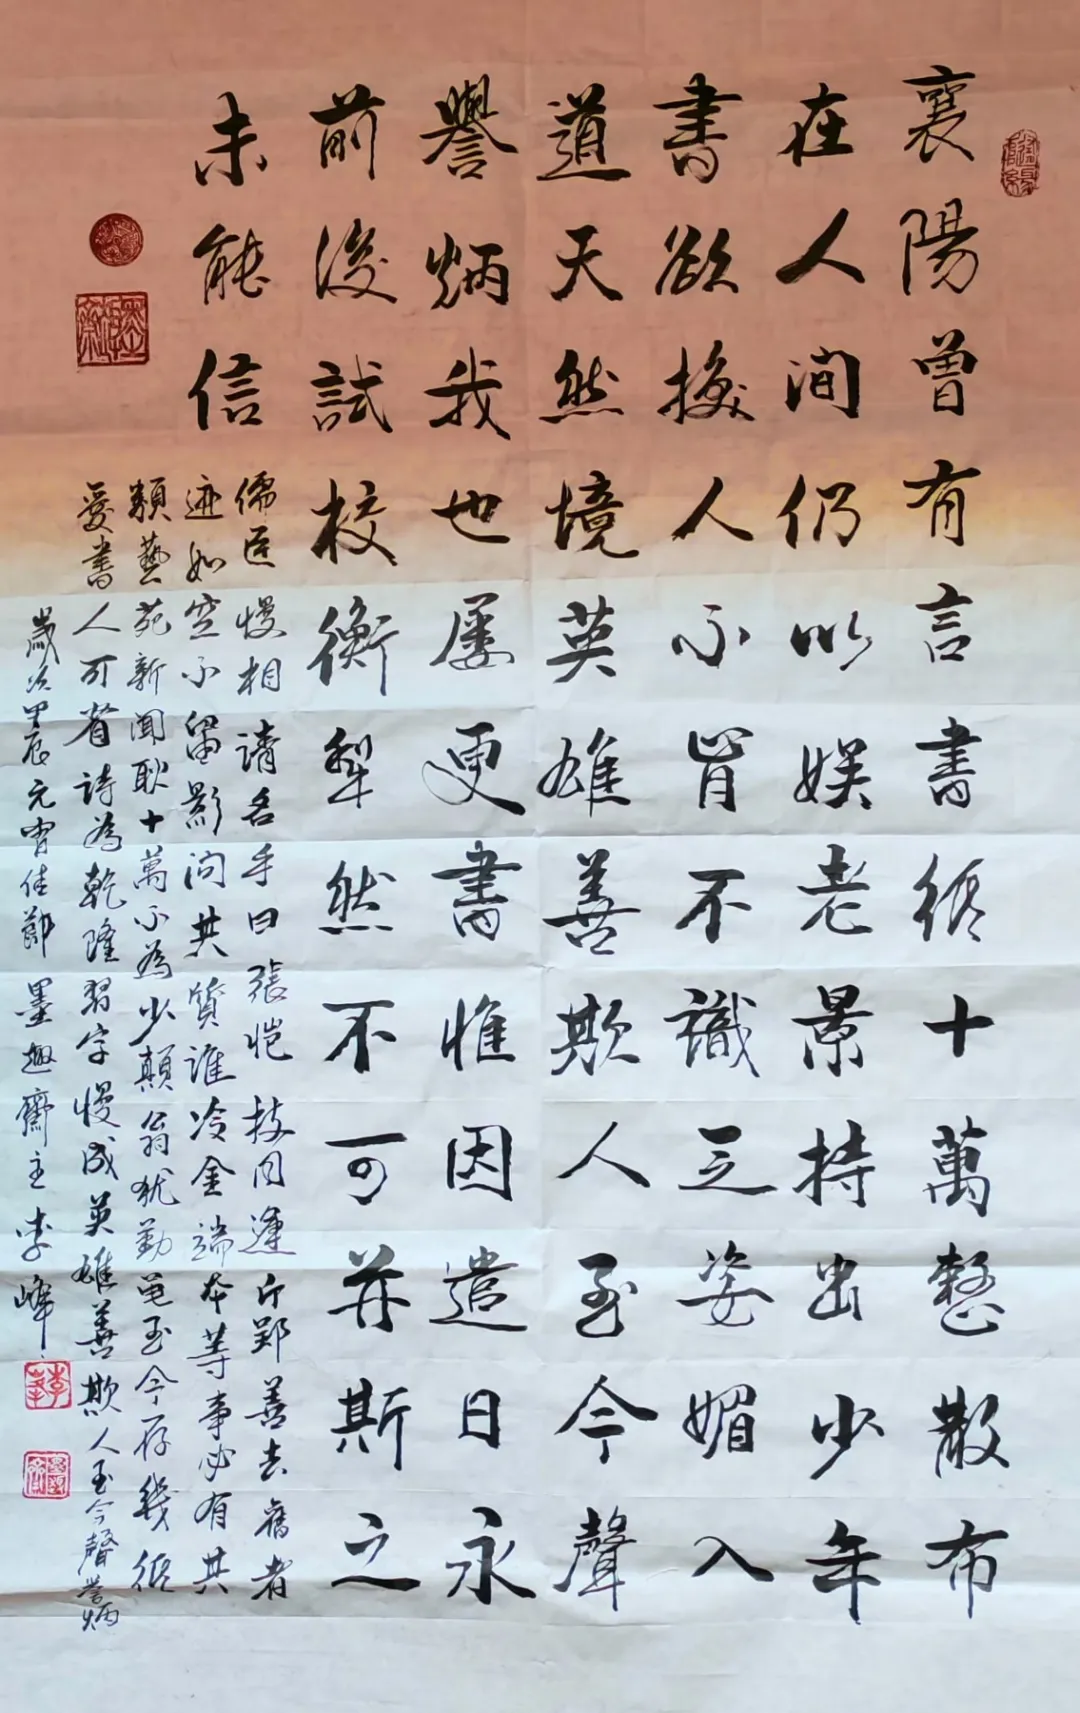 襄陽曾有言書紙十萬整散布
在人间仍以娱老景持出少年
書欲換人小肯不識之姿媚入
道天然境英雄善欺人至今聲
譽炳我也屡更書惟因遣日永
前後試校衡犁然不可并斯之
未能信
儒匠慢相請名手曰張愷技同逢丘鄞善去舊者
迹如空不留影问其質誰冷金端本等事必有其
類藝苑新聞耿十萬不為少顛翁犹勤黽至今存幾紙
愛書人可省詩為乾隆習字慢成英雄善欺人至今聲誉炳
歲次甲辰元宵佳節墨趣齋主李峰